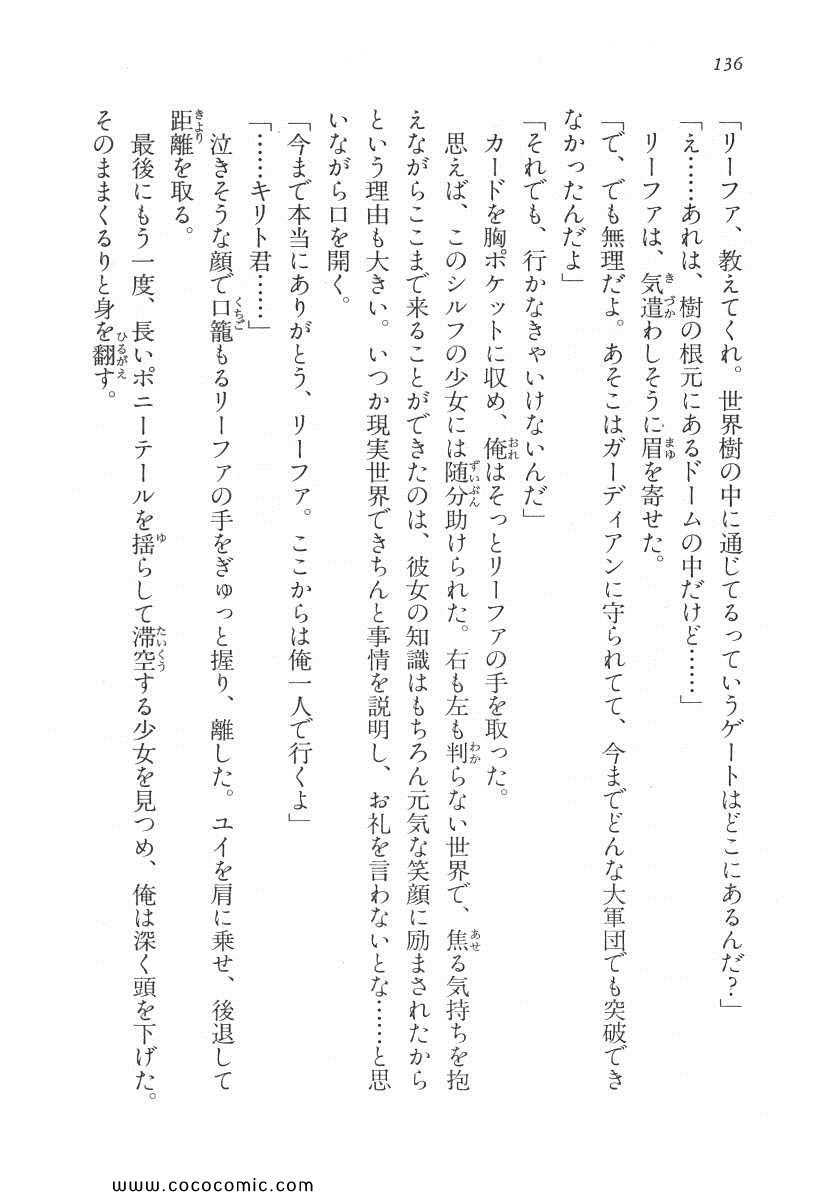 136
「リーファ、教えてくれ。世界樹の中に通じてるっていうゲートはどこにあるんだ？」
「え……あれは、樹の根元にあるドームの中だけど……」
リーファは、気遣わしそうに眉を寄せた。
「で、でも無理だよ。あそこはガーディアンに守られてて、今までどんな大軍団でも突破でき
なかったんだよ」
「それでも、行かなきゃいけないんだ」
カードを胸ポケットに収め、俺はそっとリーファの手を取った。
思えば、このシルフの少女には随分助けられた。右も左も判らない世界で、焦る気持ちを抱
えながらここまで来ることができたのは、彼女の知識はもちろん元気な笑顔に励まされたから
という理由も大きい。いつか現実世界できちんと事情を説明し、お礼を言わないとな……と思
いながら口を開く。
「今まで本当にありがとう、リーファ。ここからは俺一人で行くよ」
「……キリト君……」
泣きそうな顔で口籠もるリーファの手をぎゅっと握り、離した。ユイを肩に乗せ、後退して
距離を取る。
最後にもう一度、長いポニーテールを揺らして滞空する少女を見つめ、俺は深く頭を下げた。
そのままくるりと身を翻す。
www.cococomic.com